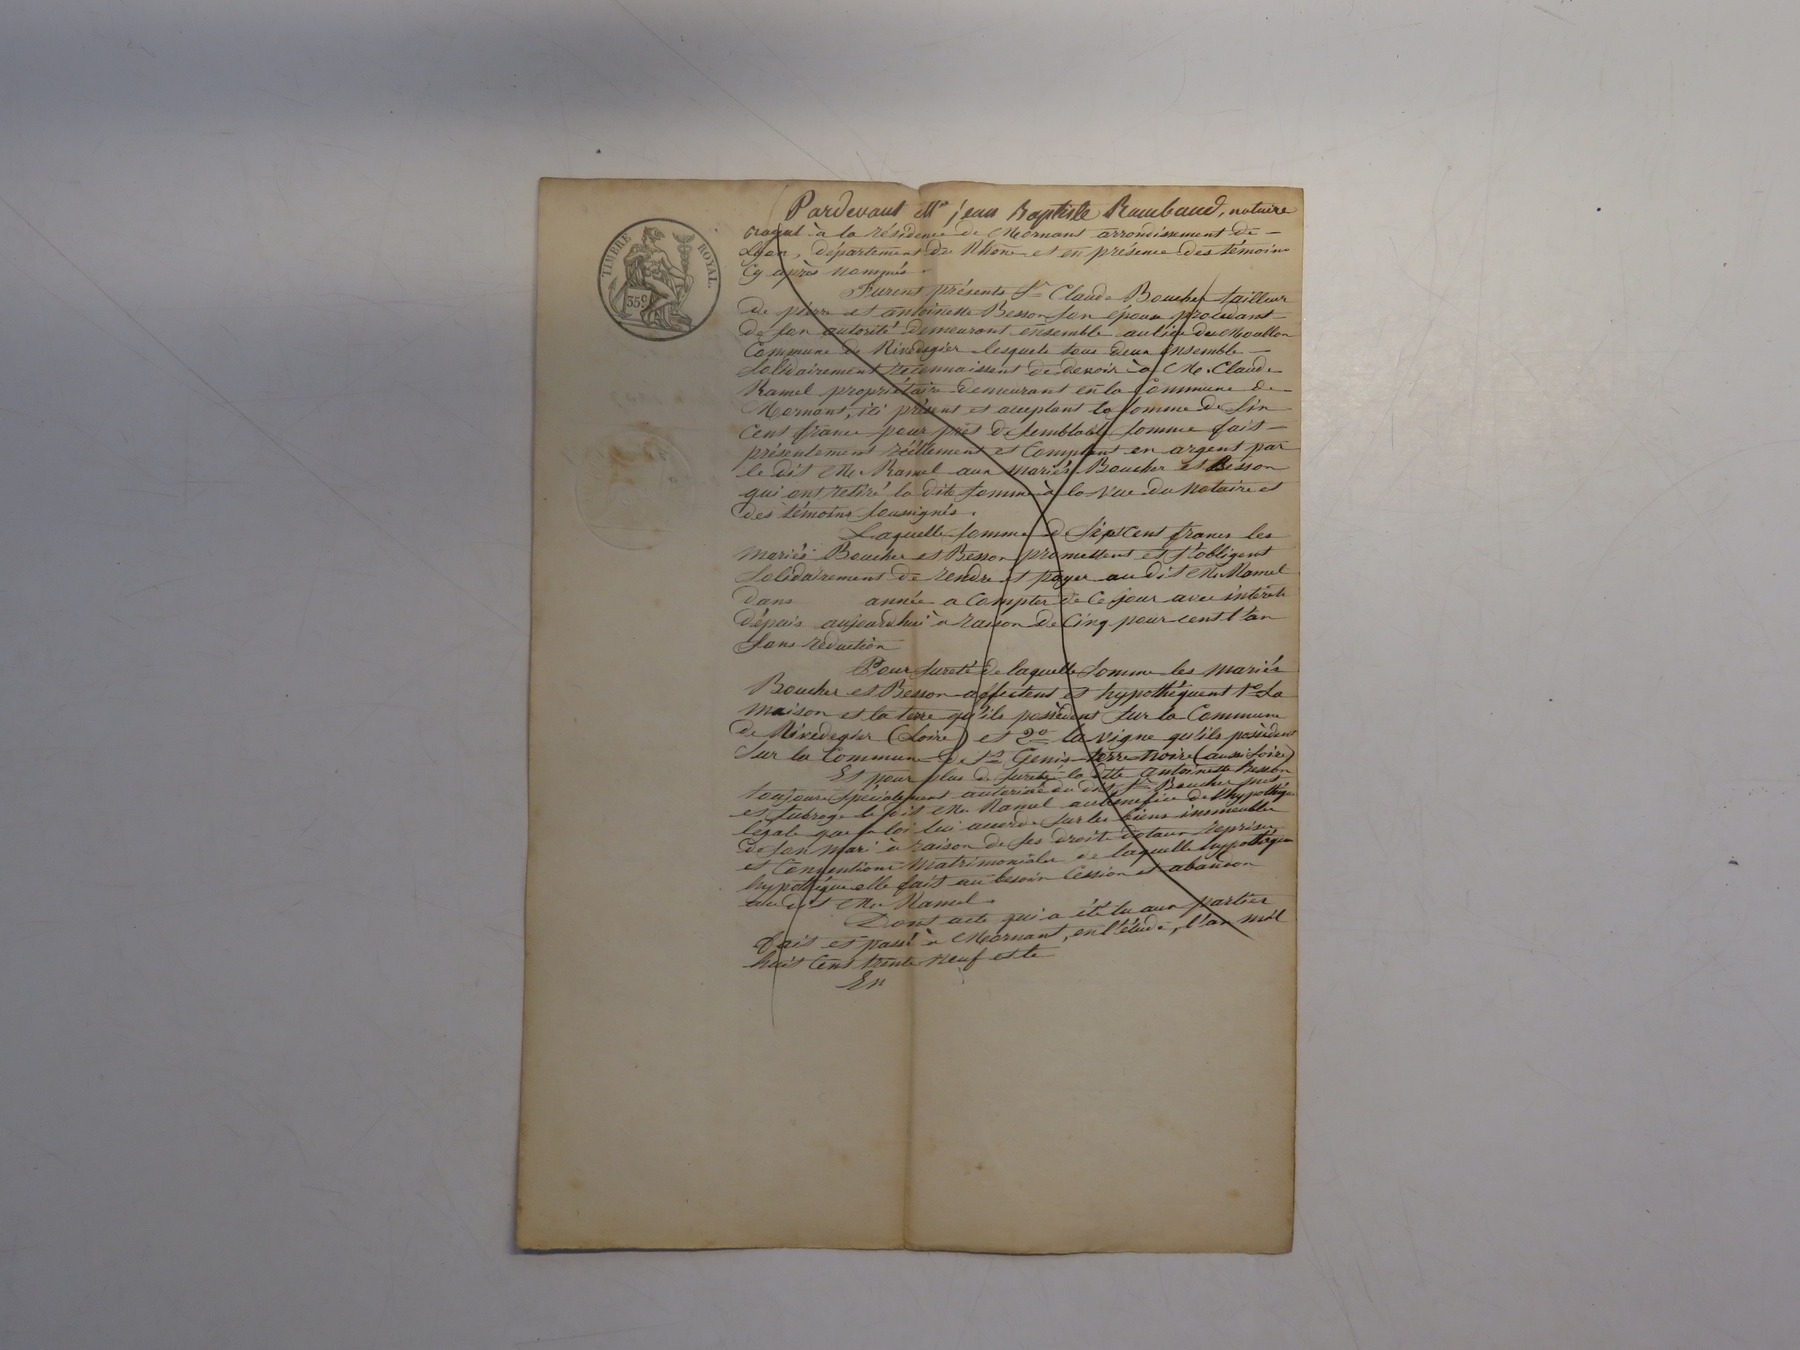 TIMBRE ROYAL.
35c
Pardevant Me jean Baptiste Raimbaud, notaire
royal à la résidence de Mornant arrondissement de
Lyon, département du Rhône et en présence des témoins
Cy après nommés.
Furent présents Sr Claude Boucher tailleur
de pierre et antoinette Besson son épouse procédant
de son autorité demeurant ensemble au lieu du Mouillon
Commune de Rivedegier lesquels tous deux ensemble
Solidairement reconnaissent de devoir à Mr. Claude
Ramel propriétaire demeurant en la Commune de
Mornant, ici présent et acceptant la somme de
Cent francs pour prêt de semblable somme fait
présentement réellement et Comptant en argent par
le dit Mr Ramel aux mariés Boucher et Besson
qui ont retiré la dite somme à la vue du notaire et
des témoins soussignés.
Laquelle somme de Sept Cent francs les
mariés Boucher et Besson promettent et s'obligent
Solidairement de rendre et payer au dit Mr Ramel
dans année a compter de ce jour avec intérêts
dépuis aujourd'hui à raison de Cinq pour cent l'an
Sans réduction
Pour sureté de laquelle somme les mariés
Boucher et Besson affectent et hypothèquent 1o La
maison et la terre qu'ils possèdent sur la Commune
de Rivedegier (Loire) et 2o la vigne qu'ils possèdent
sur la Commune de St Genis-terre-noire (aussi Loire)
Et pour plus de sureté la dite antoinette Besson
toujours spécialement autorisée du dit Sr Boucher met
et subroge le dit Mr Ramel au bénéfice de l'hypothèque
légale que la loi lui accorde sur les biens immeubles
de son mari à raison de ses droits dotaux reprises
et Conventions Matrimoniales de laquelle hypothèque
hypothèque elle fait au besoin Cession et abandon
au dit Mr Ramel.
Dont acte qui a été lu aux parties
fait et passé à Mornant, en l'étude, l'an mil
huit cent trente neuf et le
En